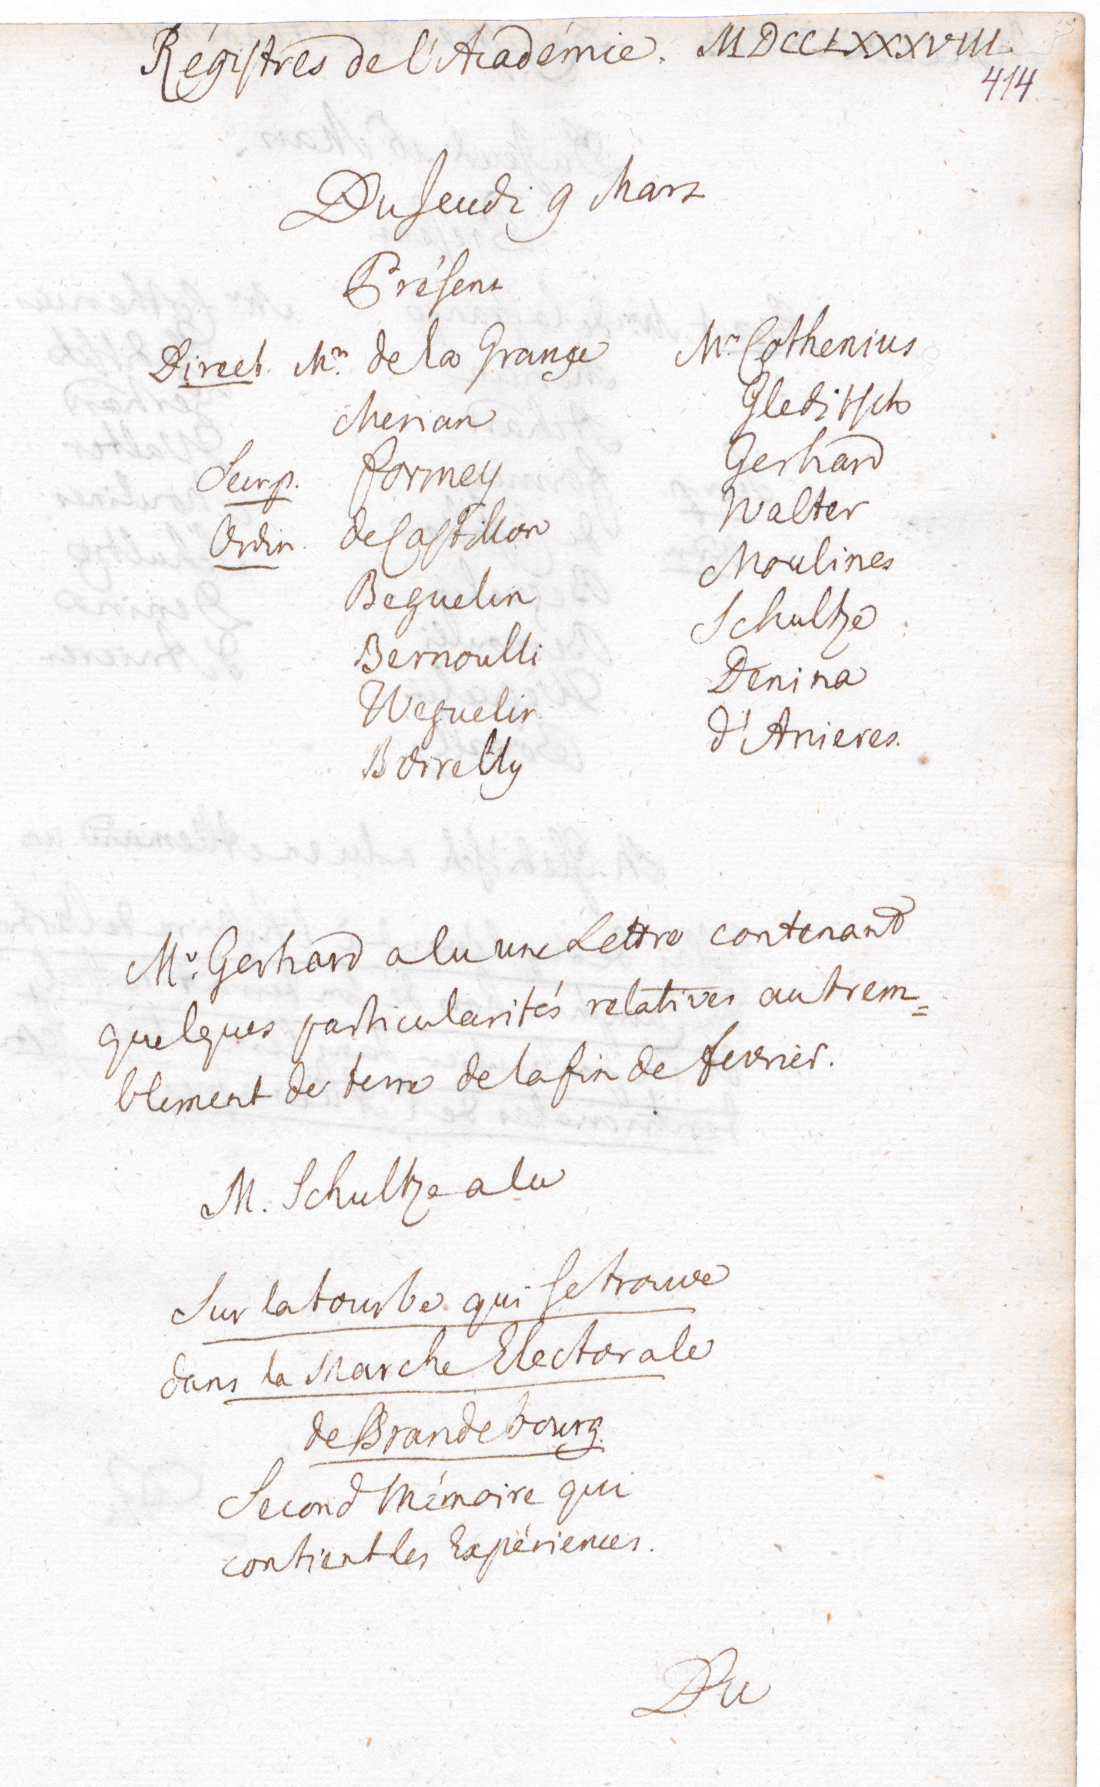 Régistres de l'Académie. MDCCLXXXVIII
414
Du Jeudi 9 Mars
Présens
Direct. Mrs. de la Grange
Merian
Secrp. Formey
Ordin. de Castillon
Beguelin
Bernoulli
Weguelin
Borrelly
Mrs Cothenius
Gleditsch
Gerhard
Walter
Moulines
Schultze
Denina
d'Anieres.
Mr. Gerhard a lu une Lettre contenant
quelques particularités relatives au trem=
blement de terre de la fin de fevrier.
M. Schultze a lu
Sur la tourbe qui se trouve
dans la Marche Electorale
de Brandebourg.
Second Mémoire qui
contient les Expériences.
Du